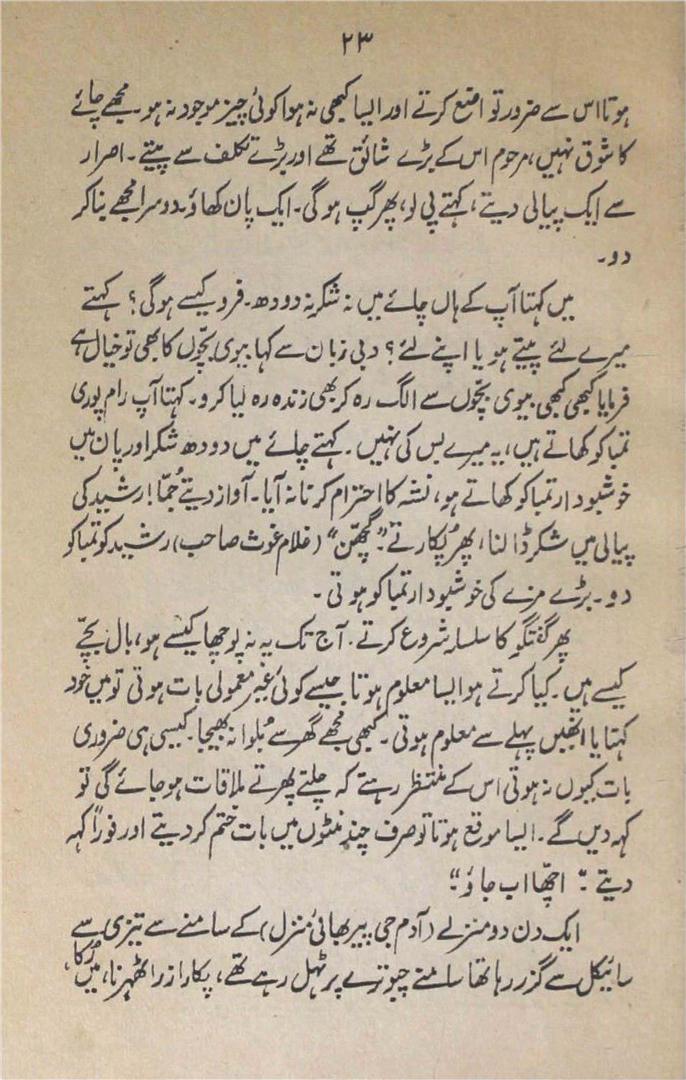 ۲۳
ہوتا اس سے ضرور تواضع کرتے اور ایسا کبھی نہ ہوا کوئی چیز موجود نہ ہو۔ مجھے چائے
کا شوق نہیں، مرحوم اس کے بڑے شائق تھے اور بڑے تکلف سے پیتے۔ اصرار
سے ایک پیالی دیتے، کہتے پی لو، پھر گپ ہوگی۔ ایک پان کھاؤ۔ دوسرا مجھے بنا کر
دو۔
میں کہتا آپ کے ہاں چائے میں نہ شکر نہ دودھ۔ فرو کیسے ہوگی؟ کہتے
میرے لئے پیتے ہو یا اپنے لئے؟ دبی زبان سے کہا بیوی بچّوں کا بھی تو خیال ہے
فرمایا کبھی کبھی بیوی بچّوں سے الگ رہ کر بھی زندہ رہ لیا کرو۔ کہتا آپ رام پوری
تمباکو کھاتے ہیں، یہ میرے بس کی نہیں۔ کہتے چائے میں دودھ شکر اور پان میں
خوشبودار تمباکو کھاتے ہو، نشہ کا احترام کرنا نہ آیا۔ آواز دیتے جُمّا! رشید کی
پیالی میں شکر ڈالنا، پھر پُکارتے "گچھّن" (غلام غوث صاحب) رشید کو تمباکو
دو۔ بڑے مزے کی خوشبودار تمباکو ہوتی۔
پھر گفتگو کا سلسلہ شروع کرتے۔ آج تک یہ نہ پوچھا کیسے ہو، بال بچّے
کیسے ہیں۔ کیا کرتے ہو ایسا معلوم ہوتا جیسے کوئی غیر معمولی بات ہوتی تو میں خود
کہتا یا انھیں پہلے سے معلوم ہوتی۔ کبھی مجھے گھر سے بُلوا نہ بھیجا۔ کیسی ہی ضروری
بات کیوں نہ ہوتی اس کے منتظر رہتے کہ چلتے پھرتے ملاقات ہو جائے گی تو
کہہ دیں گے۔ ایسا موقع ہوتا تو صرف چند منٹوں میں بات ختم کر دیتے اور فوراً کہہ
دیتے۔ "اچھّا اب جاؤ"
ایک دن دو منزلے (آدم جی پیر بھائی منزل) کے سامنے سے تیزی سے
سائیکل سے گزر رہا تھا سامنے چبوترے پر ٹہل رہے تھے، پکارا ذرا ٹھہرنا، میں رُکا،